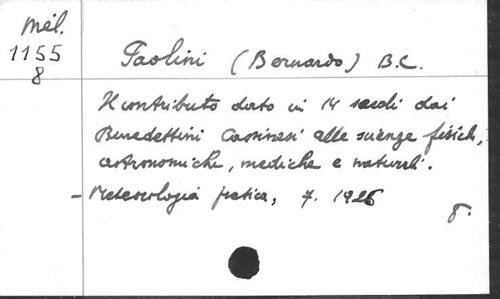 Mél.
1155
8
Paolini (Bernardo) B.C.
Il contributo dato in 14 secoli dai
Benedettini Cassinesi alle scienze fisiche,
astronomiche, mediche e naturali.
- Meteorologia pratica, 7. 1926
8.